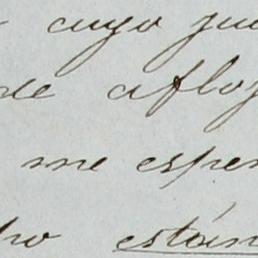 cuyo pue
de afloj
me esper
están